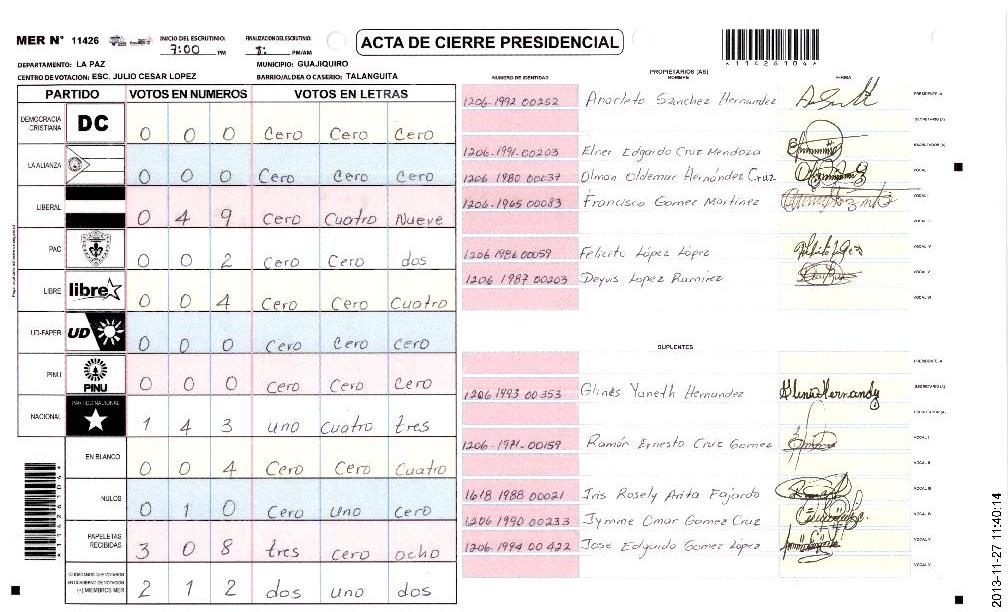 MER N° 11426
INICIO DEL ESCRUTINIO: 7:00 PM
FINALIZACION DEL ESCRUTINIO: 8: PM/AM
ACTA DE CIERRE PRESIDENCIAL
*11426104*
DEPARTAMENTO: LA PAZ
MUNICIPIO: GUAJIQUIRO
CENTRO DE VOTACION: ESC. JULIO CESAR LOPEZ
BARRIO/ALDEA O CASERIO: TALANGUITA
PARTIDO VOTOS EN NUMEROS VOTOS EN LETRAS
DEMOCRACIA CRISTIANA DC 0 0 0 Cero Cero Cero
LA ALIANZA 0 0 0 Cero Cero Cero
LIBERAL 0 4 9 Cero Cuatro Nueve
PAC 0 0 2 Cero Cero dos
LIBRE libre 0 0 4 Cero Cero Cuatro
UD-FAPER UD 0 0 0 Cero Cero Cero
PINU PINU 0 0 0 Cero Cero Cero
NACIONAL PARTIDO NACIONAL 1 4 3 uno Cuatro tres
EN BLANCO 0 0 4 Cero Cero Cuatro
NULOS 0 1 0 Cero uno Cero
PAPELETAS RECIBIDAS 3 0 8 tres cero ocho
CIUDADANOS QUE VOTARON EN CUADERNO DE VOTACION (+) MIEMBROS MER 2 1 2 dos uno dos
PROPIETARIOS (AS)
NUMERO DE IDENTIDAD NOMBRE FIRMA
1206-1992 00252 Anarleto Sanchez Hernandez PRESIDENTE-A
SECRETARIO (A)
1206-1991-00203 Elner Edgardo Cruz Mendoza ESCRUTADOR (A)
1206 1980 00037 Olman Oldemar Hernández Cruz VOCAL I
1206-1965 00083 Francisco Gomez Martinez VOCAL II
VOCAL III
1206 1986 00059 Felicito López López VOCAL IV
1206 1987 00203 Deyvis Lopez Ramirez VOCAL V
VOCAL VI
SUPLENTES
PRESIDENTE-A
1206 1993 00353 Glinis Yaneth Hernandez SECRETARIO (A)
ESCRUTADOR (A)
1206-1971-00159 Ramón Ernesto Cruz Gomez VOCAL I
VOCAL II
1618 1988 00021 Iris Rosely Arita Fajardo VOCAL III
1206 1990 00233 Jymme Omar Gomez Cruz VOCAL IV
1206-1994 00422 Jose Edgardo Gomez López VOCAL V
VOCAL VI
2013-11-27 11:40:14